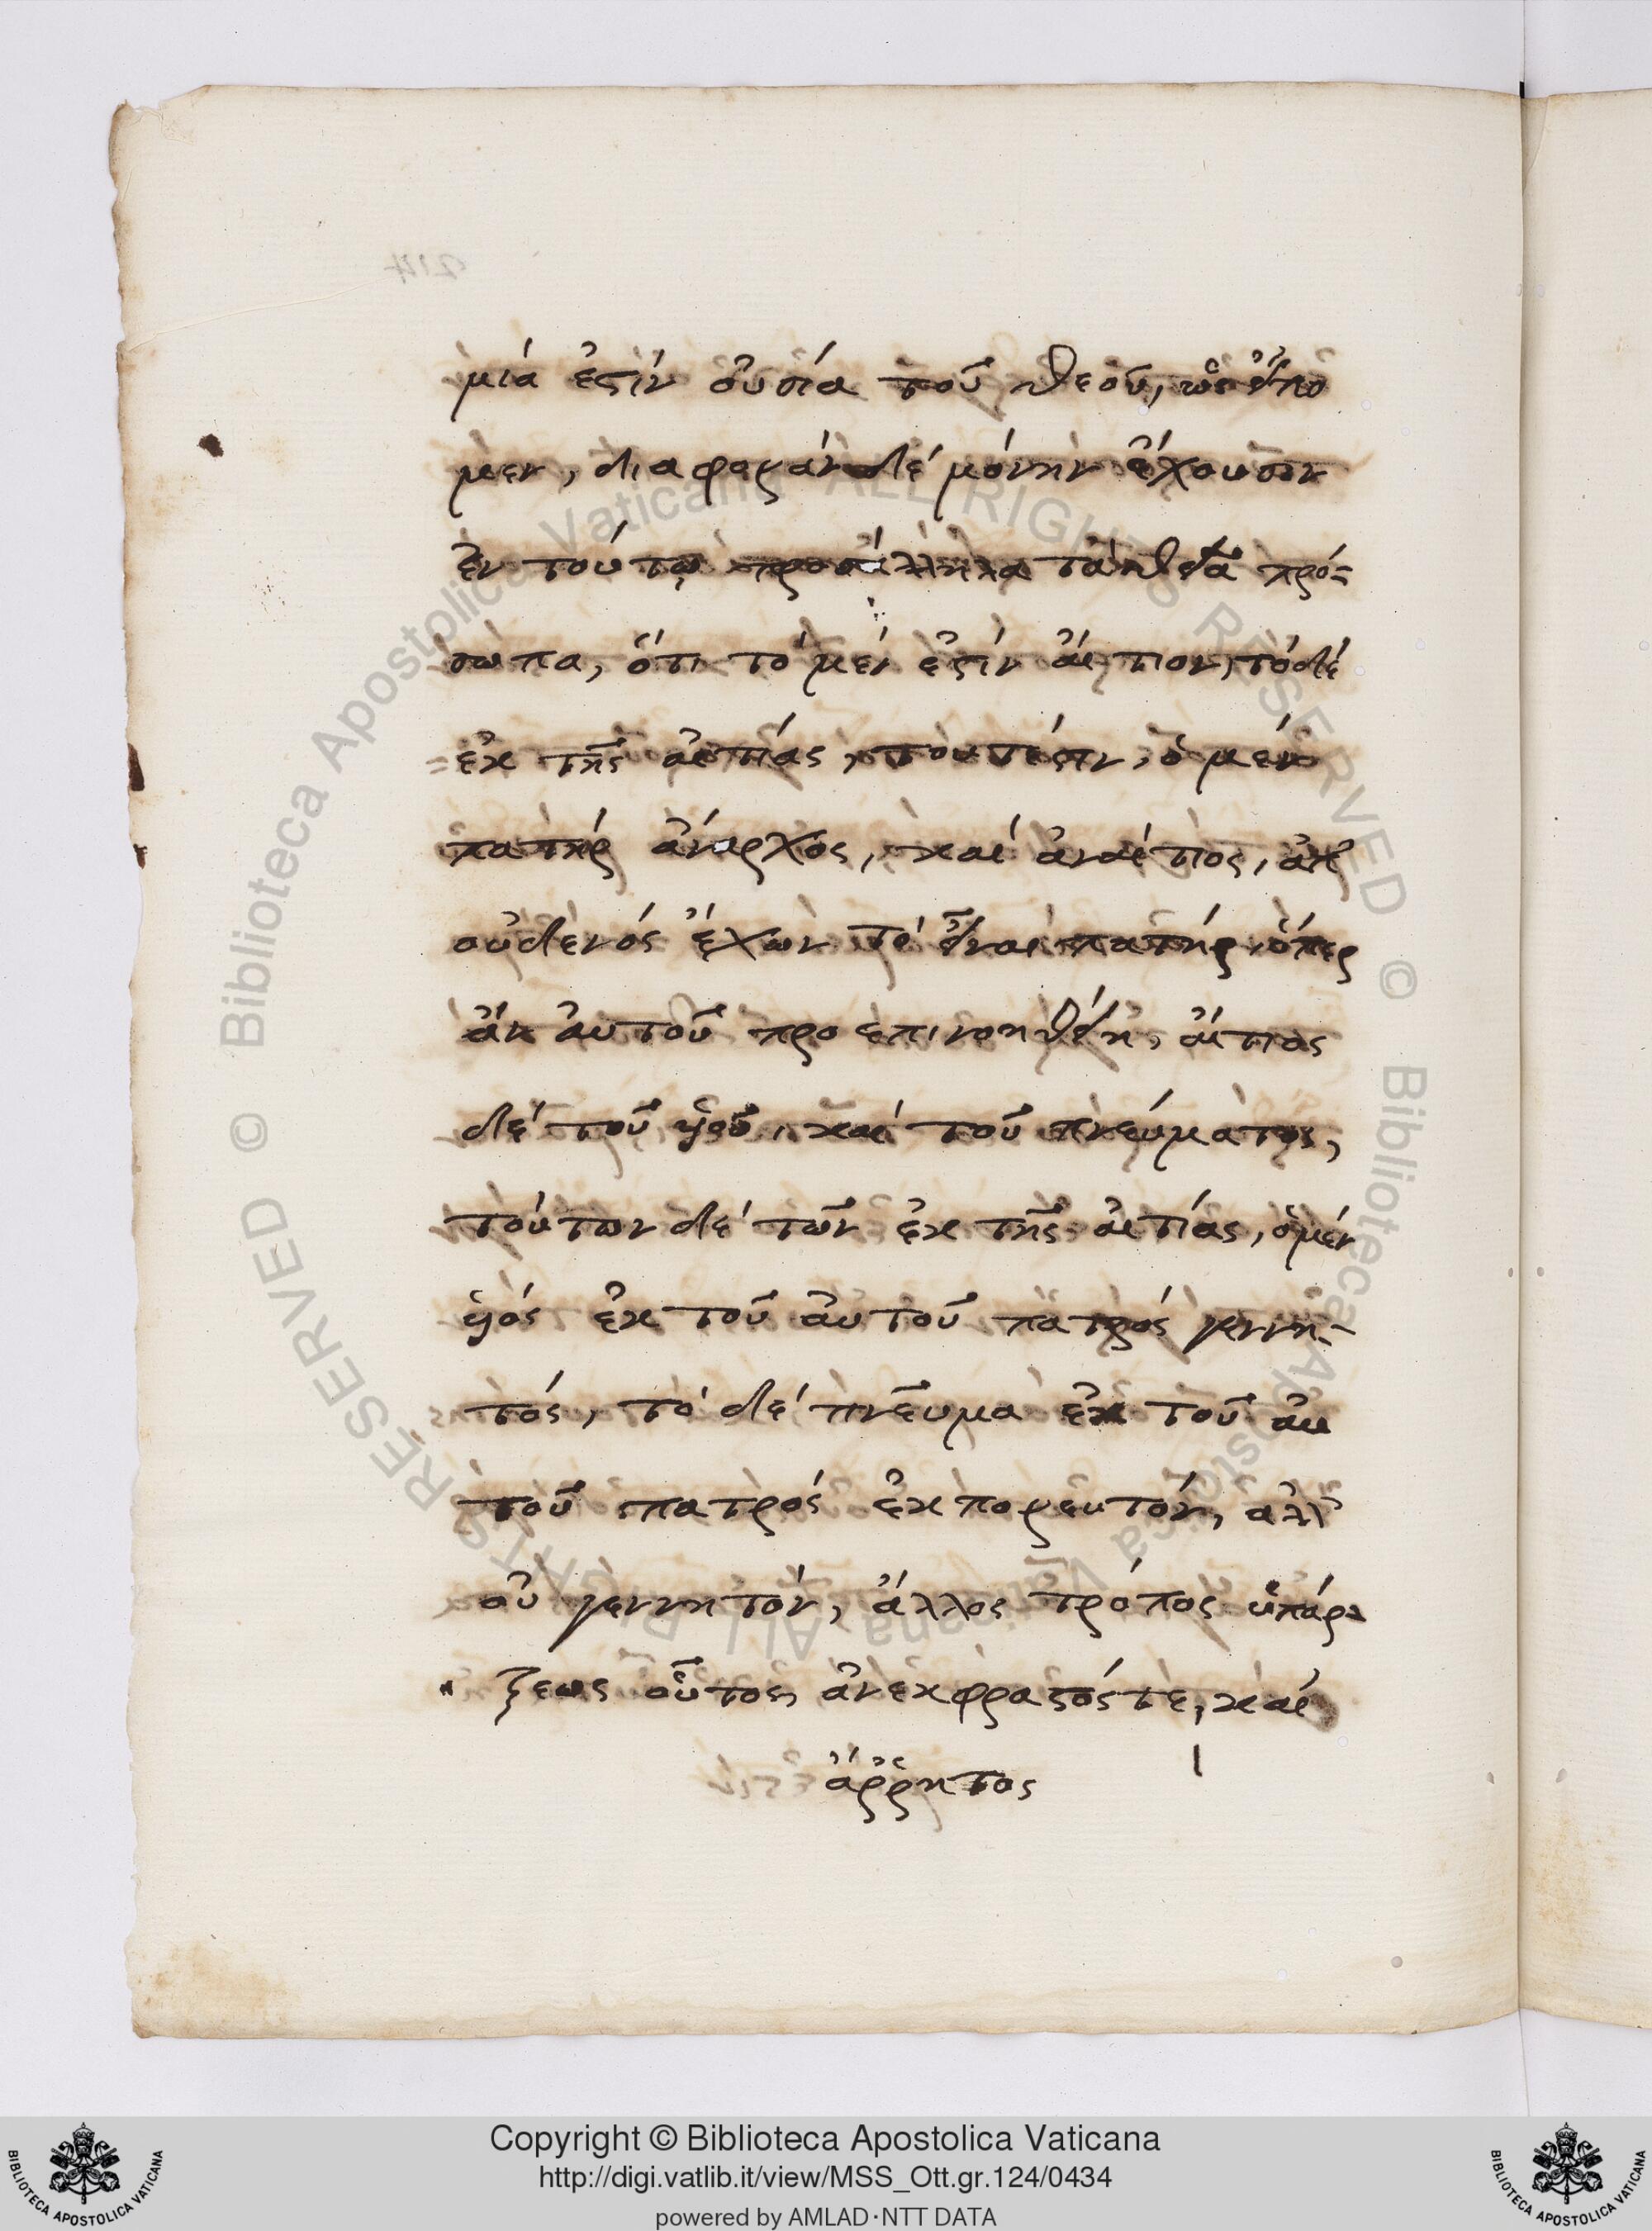 μία ἐστίν οὐσία τοῦ θεοῦ, ὡς εἴπο
μεν, διαφοράν δέ μόνην ἔχουσιν
ἐν τούτῳ προσάλληλα τά θεῖα πρό=
σωπα, ὅτι τό μέν ἐστίν αἴτιον, τό δέ
=ἐκ τῆς αἰτίας, τουτέστιν, ὁ μέν
πατήρ ἄναρχος, καί ἀναίτιος, ἀπ'
οὐδενός ἔχων τό εἶναι πατήρ ὅπερ
ἄν αὐτοῦ προεπινοηθείη, αἴτιος
δέ τοῦ υἱοῦ, καί τοῦ πνεύματος,
τούτων δέ τῶν ἐκ τῆς αἰτίας, ὁ μέν
υἱός ἐκ τοῦ αὐτοῦ πατρός γεννη-
τός, τό δέ πνεῦμα ἐκ τοῦ αὐ
τοῦ πατρός ἐκπορευτόν, ἀλλ'
οὐ γεννητόν, ἄλλος τρόπος ὑπάρ-
ξεως οὗτος, ἀνέκφραστός τε, καί
ἄῤῥητος
Copyright © Biblioteca Apostolica Vaticana
http://digi.vatlib.it/view/MSS_Ott.gr.124/0434
powered by AMLAD·NTT DATA
BIBLIOTECA APOSTOLICA VATICANA
BIBLIOTECA APOSTOLICA VATICANA
© Biblioteca Apostolica Vaticana ALL RIGHTS RESERVED © Biblioteca Apostolica Vaticana ALL RIGHTS RESERVED